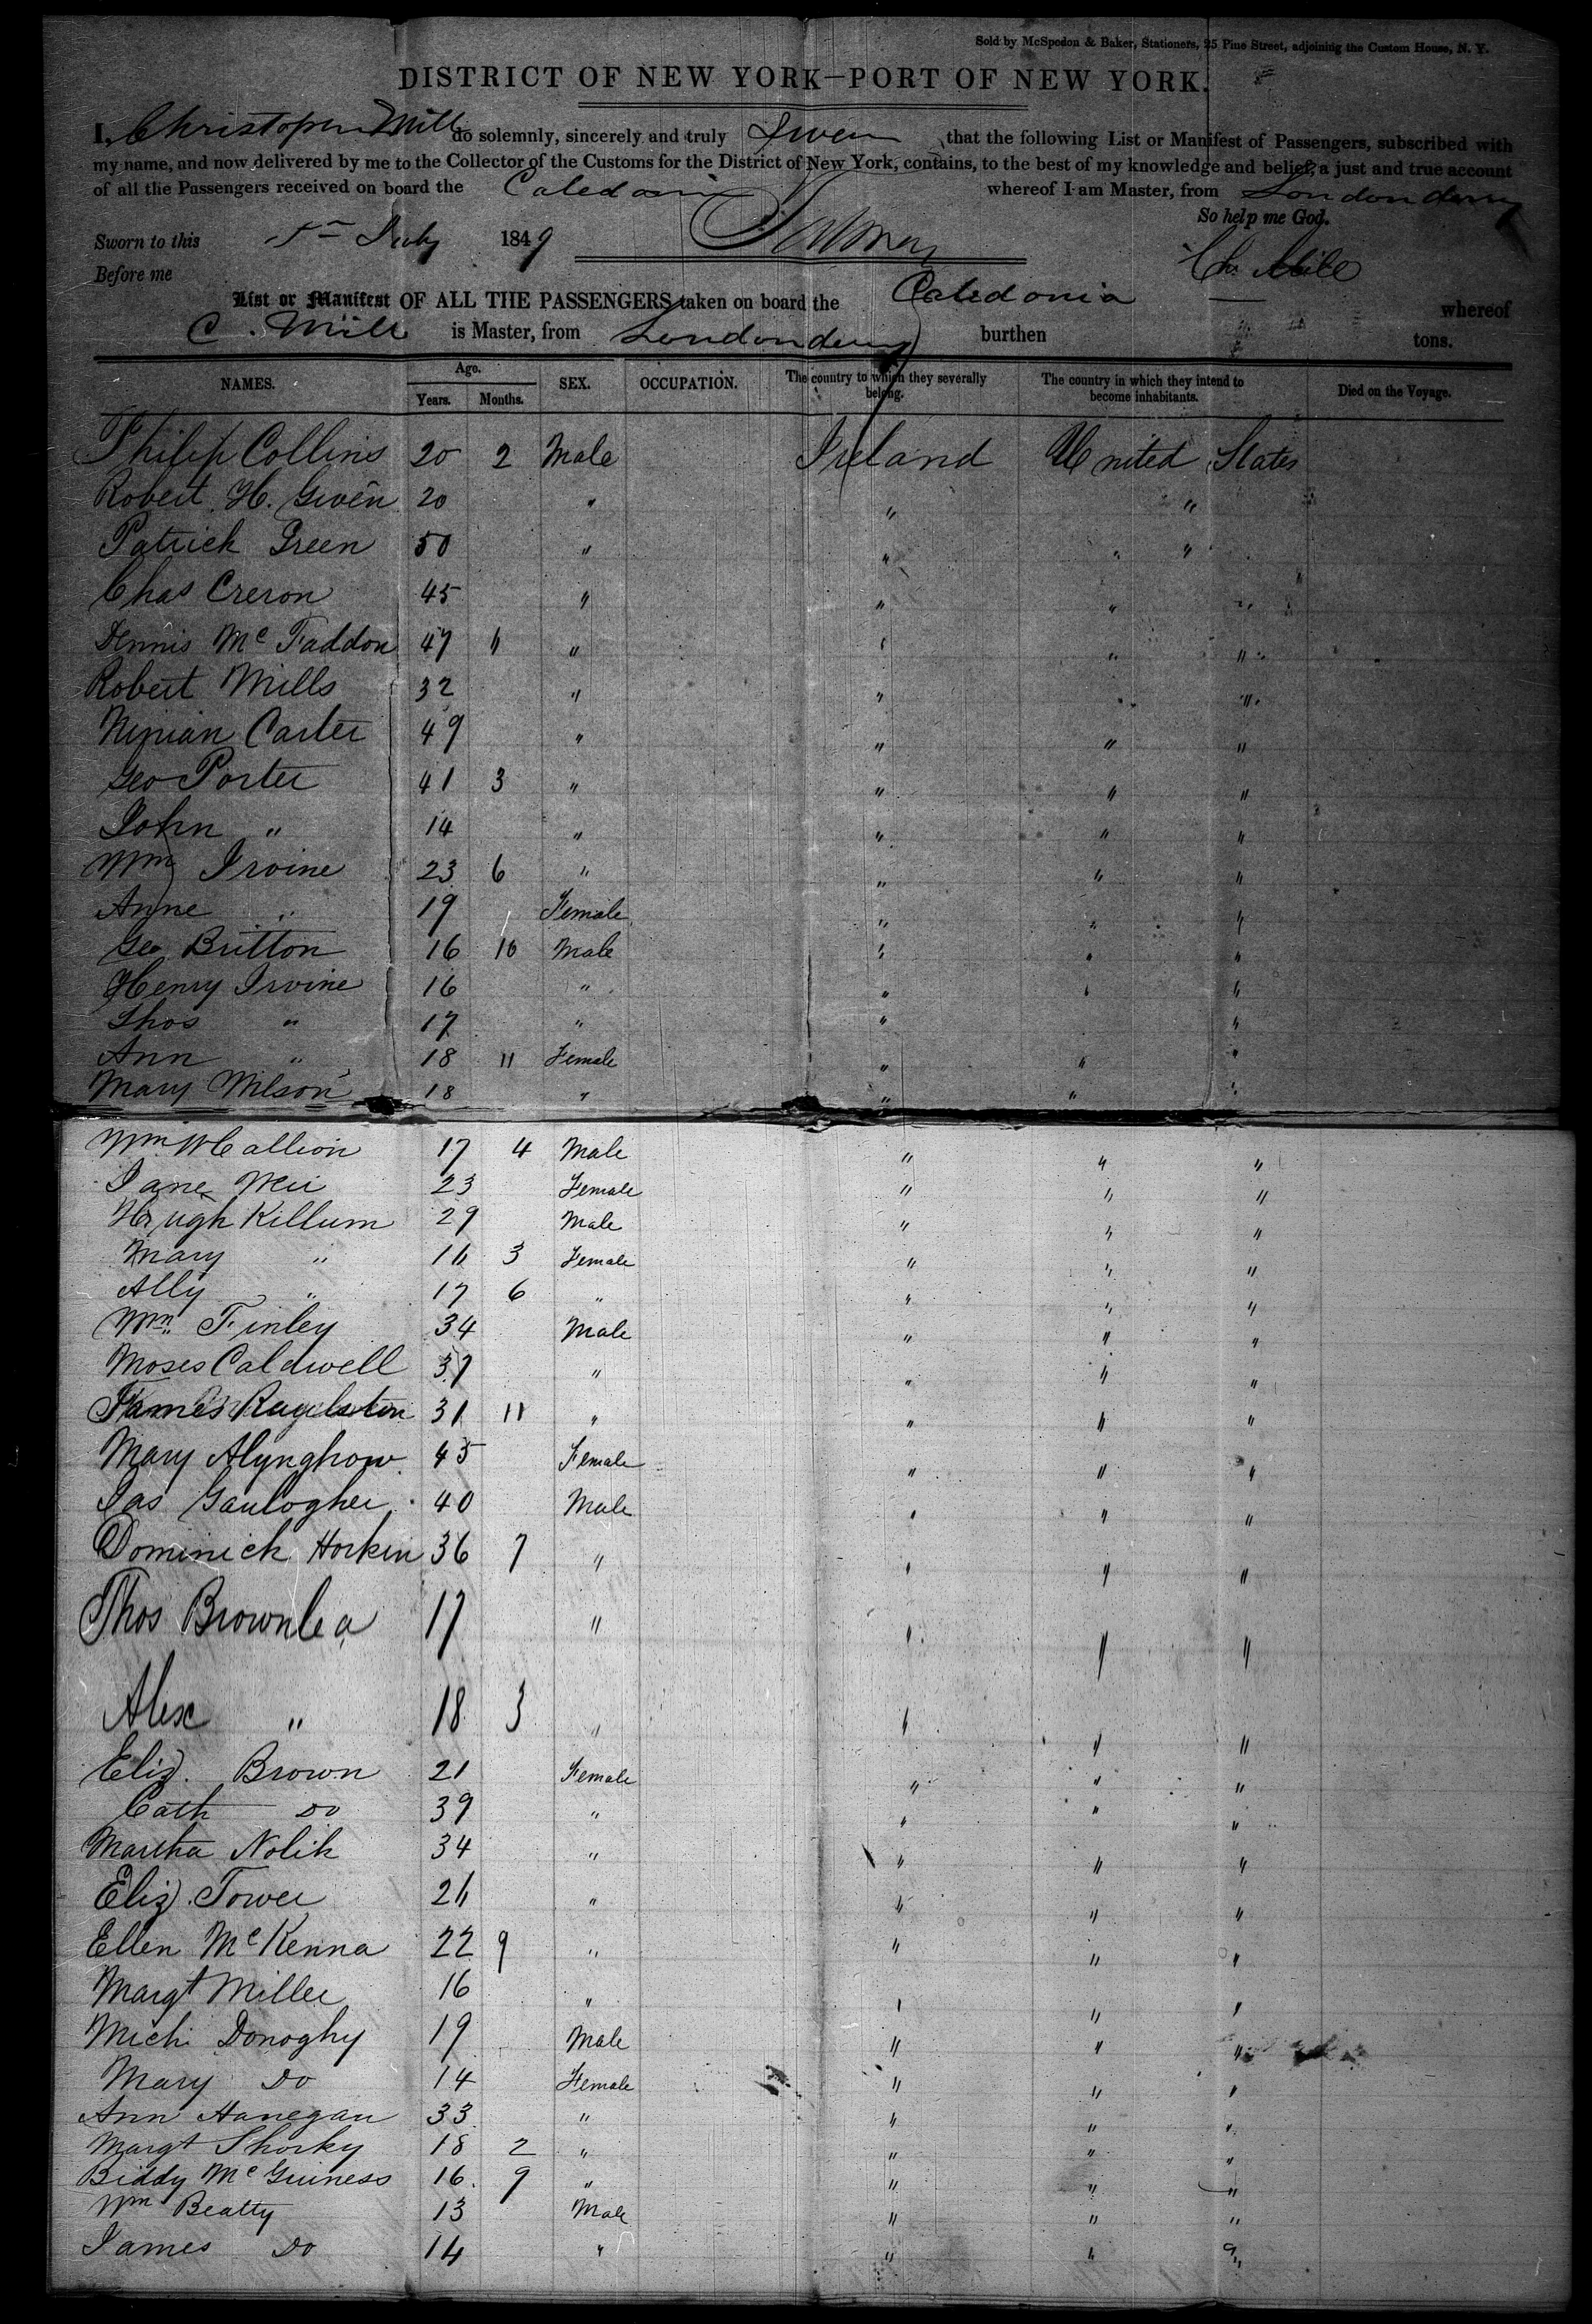 Sold by McSpedon & Baker, Stationers, 25 Pine Street, adjoining the Custom House, N. Y.
DISTRICT OF NEW YORK—PORT OF NEW YORK.
I, Christopher Mill do solemnly, sincerely and truly Swear that the following List or Manifest of Passengers, subscribed with
my name, and now delivered by me to the Collector of the Customs for the District of New York, contains, to the best of my knowledge and belief, a just and true account
of all the Passengers received on board the Caledonia whereof I am Master, from Londonderry
So help me God.
Sworn to this July 1849
Before me
List or Manifest OF ALL THE PASSENGERS taken on board the Caledonia whereof
C. Mill is Master, from Londonderry burthen tons.
NAMES. Age. Years. Months. SEX. OCCUPATION. The country to which they severally belong. The country in which they intend to become inhabitants. Died on the Voyage.
Philip Collins 20 2 Male Ireland United States
Robert H. Given 20 " " "
Patrick Green 50 " " " "
Chas Creron 45 " " " "
Dennis McFaddon 47 11 " " " "
Robert Mills 32 " " " "
Ninian Carter 49 " " " "
Geo Porter 41 3 " " " "
John " 14 " " " "
Wm Irvine 23 6 " " " "
Anne " 19 Female " " "
Geo Britton 16 10 Male " " "
Henry Irvine 16 " " " "
Thos " 17 " " "
Ann " 18 11 Female " " "
Mary Wilson 18 " " " "
Wm McCallion 17 4 Male " " "
Jane Weir 23 Female " " "
Hugh Killum 29 Male " " "
Mary " 16 3 Female " " "
Ally " 17 6 " " " "
Wm Finley 34 Male " " "
Moses Caldwell 37 " " " "
James 31 11 " " " "
Mary 45 Female " " "
Jas Gaulogher 40 Male " " "
Dominick Horkin 36 7 " " " "
Thos Brownlea 17 " " " "
Alex " 18 3 " " " "
Eliz. Brown 21 Female " " "
Cath Do 39 " " " "
Martha Nolik 34 " " " "
Eliz. Tower 26 " " " "
Ellen McKenna 22 9 " " " "
Margt Miller 16 " " " "
Mich. Donoghy 19 Male " " "
Mary Do 14 Female " " "
Ann Hanegan 33 " " " "
Margt Shorky 18 2 " " " "
Biddy McGuiness 16 9 " " " "
Wm Beatty 13 Male " " "
James Do 14 " " " "